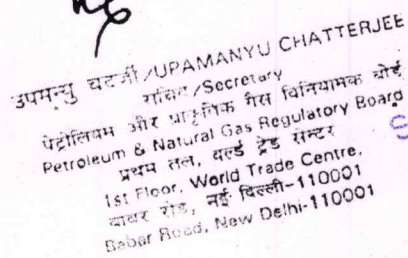 उपमन्यु चटर्जी/UPAMANYU CHATTERJEE
सचिव/Secretary
पेट्रोलियम और प्राकृतिक गैस विनियामक बोर्ड
Petroleum & Natural Gas Regulatory Board
प्रथम तल, वर्ल्ड ट्रेड सेन्टर
1st Floor, World Trade Centre,
बाबर रोड, नई दिल्ली-110001
Babar Road, New Delhi-110001